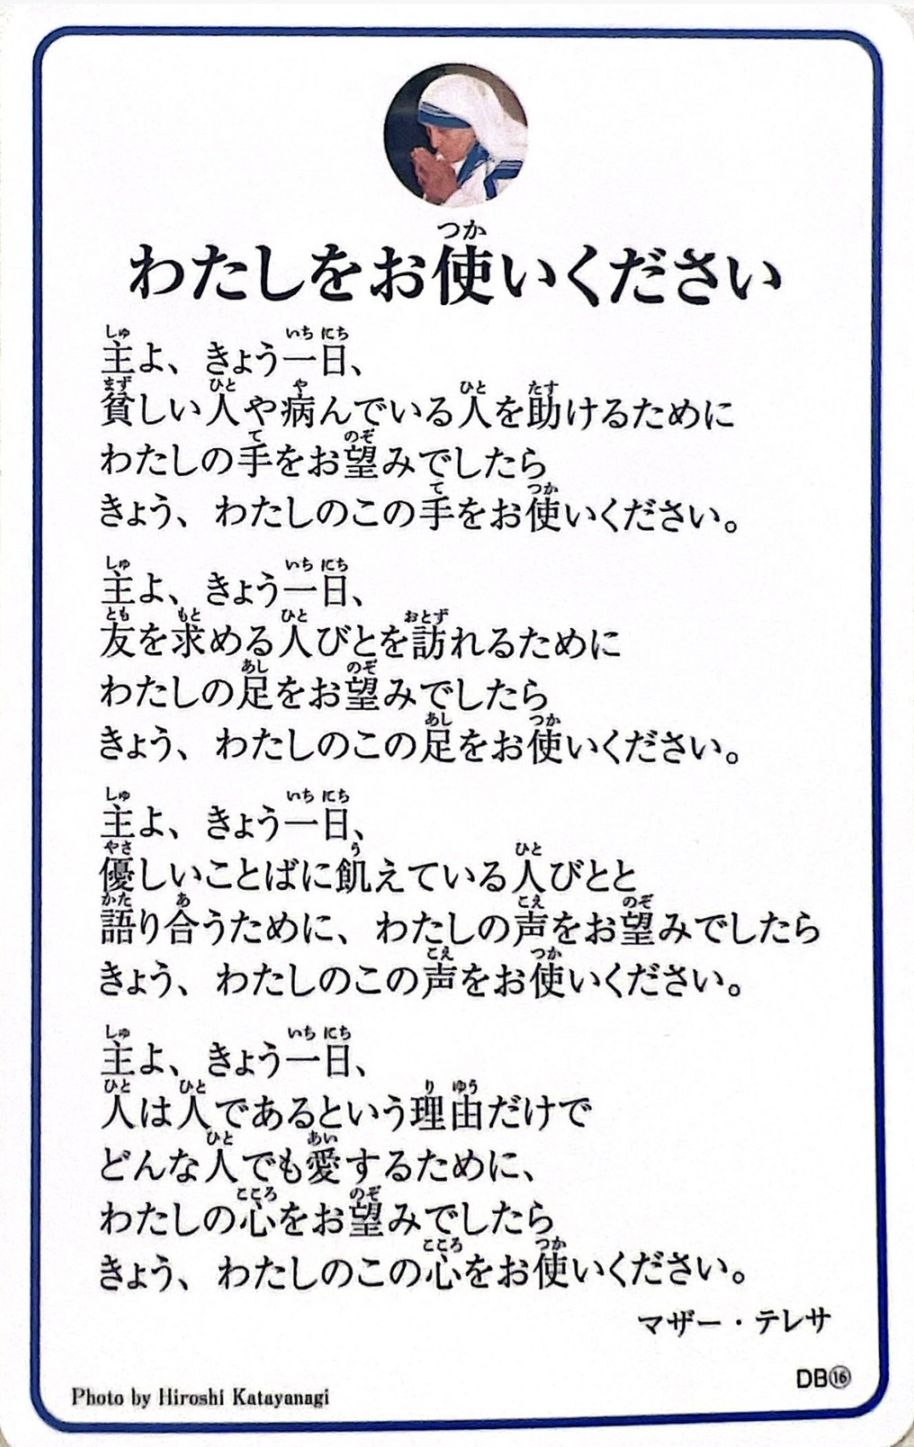 わたしをお使いください
主よ、きょう一日、
貧しい人や病んでいる人を助けるために
わたしの手をお望みでしたら
きょう、わたしのこの手をお使いください。
主よ、きょう一日、
友を求める人びとを訪れるために
わたしの足をお望みでしたら
きょう、わたしのこの足をお使いください。
主よ、きょう一日、
優しいことばに飢えている人びとと
語り合うために、わたしの声をお望みでしたら
きょう、わたしのこの声をお使いください。
主よ、きょう一日、
人は人であるという理由だけで
どんな人でも愛するために、
わたしの心をお望みでしたら
きょう、わたしのこの心をお使いください。
マザー・テレサ
DB⑯
Photo by Hiroshi Katayanagi